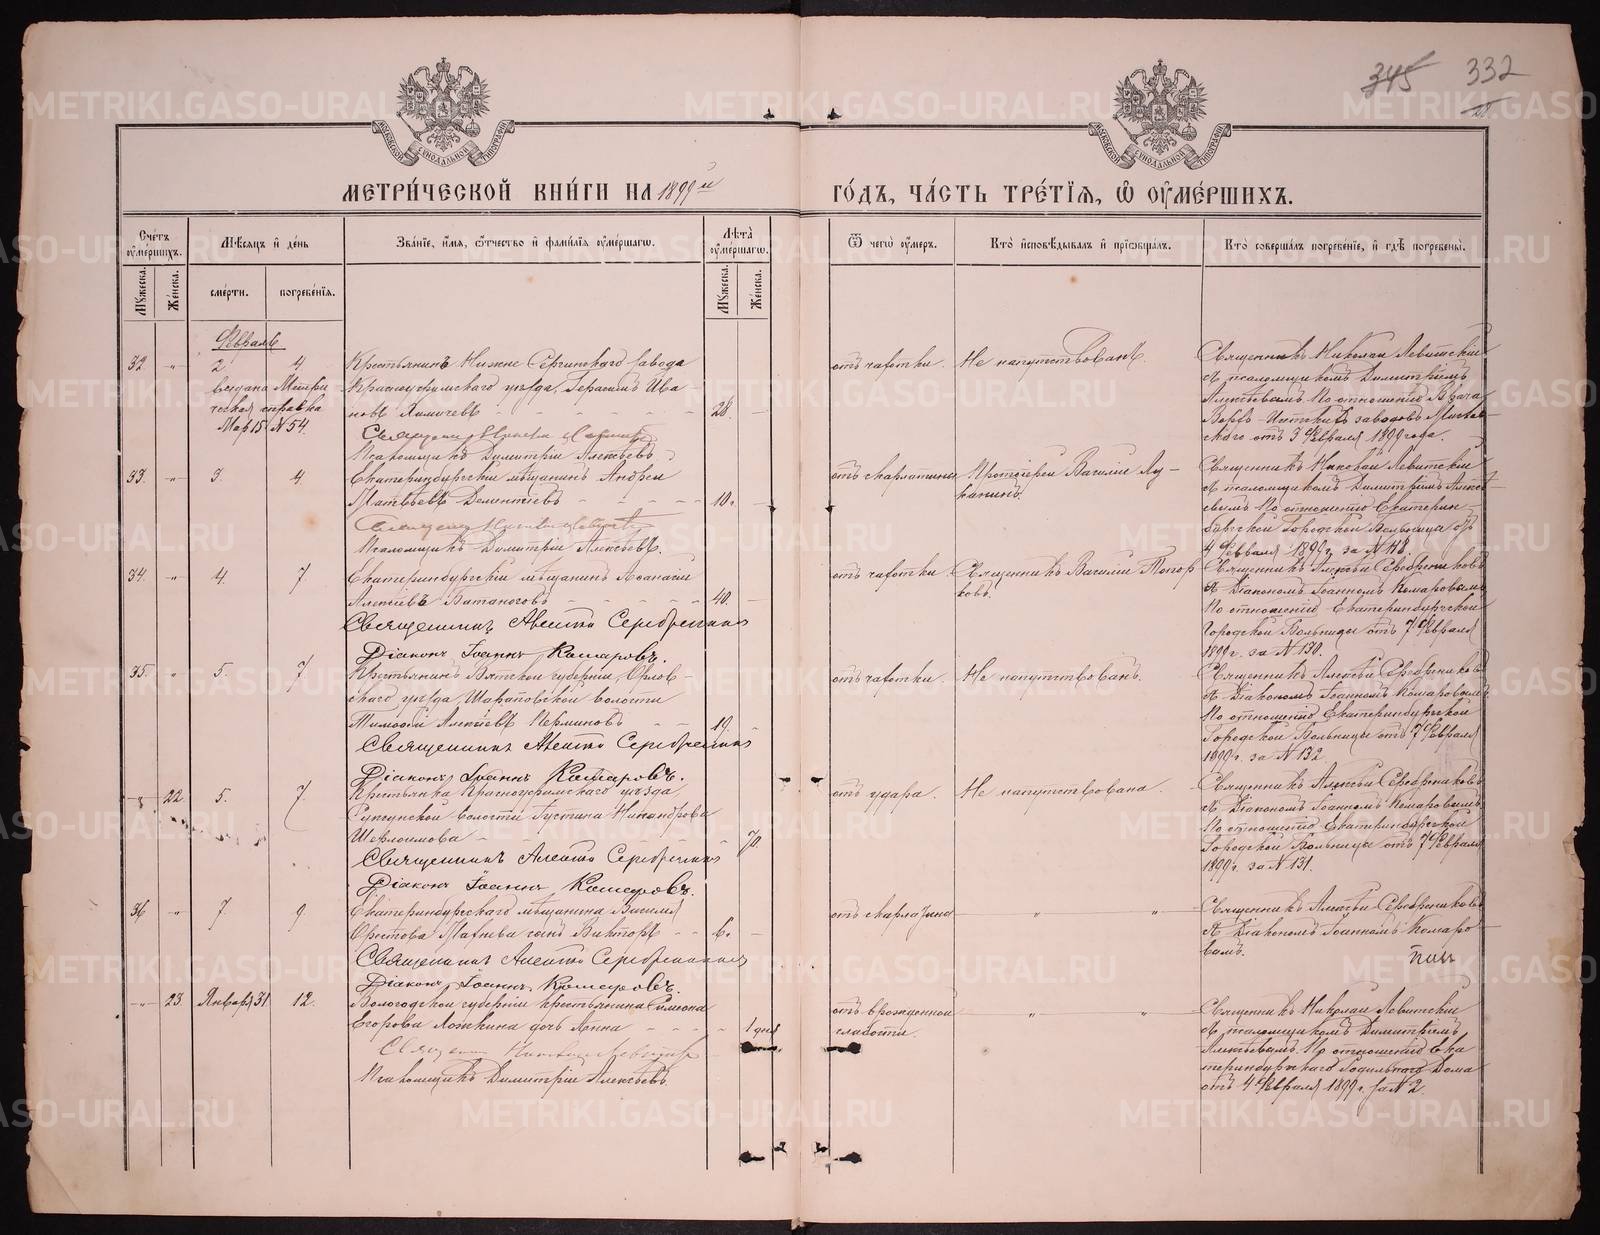 345 332
МОСКОВСКОЙ СѴНОДАЛЬНОЙ ТИПОГРАФІИ
МОСКОВСКОЙ СѴНОДАЛЬНОЙ ТИПОГРАФІИ
МЕТРИ́ЧЕСКОЙ КНИ́ГИ НА 1899й ГО́ДЪ, ЧА́СТЬ ТРЕ́ТІЯ, Ѡ ОУМЕ́РШИХЪ.
Сче́тъ оуме́ршихъ.
Мѣ́сяцъ и де́нь
Зва́ніе, и́мя, ѻ́тчество и фами́лія оуме́ршагѡ.
Лѣта̀ оуме́ршагѡ.
Ѿ чегѡ̀ оу́меръ.
Кто̀ исповѣ́дывалъ и пріѡбща́лъ.
Кто̀ соверша́лъ погребе́ніе, и гдѣ̀ погребены̀.
Му́жеска. Же́нска. сме́рти. погребе́нія. Му́жеска. Же́нска.
Февраль
32 " 2 4
выдана Метри
ческая справка
Мар 15 N 54.
Крестьянинъ Нижне Сергинскаго завода
Красноуфимскаго уѣзда, Герасимъ Ива
новъ 28.
Псаломщикъ Димитрій Алексѣевъ
отъ чахотки. Не напутствованъ
Священникъ Николай Левитскій
съ псаломщикомъ Димитріемъ
Алексѣевымъ. По отношенію Врача
Верхъ-Исетскихъ заводовъ
отъ 3 Февраля 1899 года.
33. " 3. 4.
Екатеринбургскій мѣщанинъ Андрей
Матвѣевъ Дементьевъ 10.
Псаломщикъ Димитрій Алексѣевъ.
отъ скарлатины Протоіерей Василій Лу-
канинъ.
Священникъ Николай Левитскій
съ псаломщикомъ Димитріемъ Алексѣ-
вымъ По отношенію Екатерин
бургской Городской Больницы отъ
4 Февраля 1899 г. за N 118.
34. " 4. 7
Екатеринбургскій мѣщанинъ Аѳанасій
Алексѣевъ Батаноговъ 40.
Священникъ Алексій Серебренниковъ
Діаконъ Іоаннъ Комаровъ.
отъ чахотки Священникъ Василій Топор
ковъ.
Священникъ Алексѣй Серебренниковъ
съ Діакономъ Іоанномъ Комаровымъ
По отношенію Екатеринбургской
Городской Больницы отъ 7 Февраля
1899 г. за N 130.
35. " 5. 7
Крестьянинъ Вятской губерніи, Орлов-
скаго уѣзда, Шараповской волости
Тимофей Алексѣевъ Перминовъ 19.
Священникъ Алексій Серебренниковъ
Діаконъ Іоаннъ Комаровъ.
отъ чахотки. Не напутствованъ.
Священникъ Алексѣй Серебренниковъ
съ Діакономъ Іоанномъ Комаровымъ
По отношенію Екатеринбургской
Городской Больницы отъ 7 Февраля
1899 г. за N 132.
" 22 5. 7.
Крестьянка Красноуфимскаго уѣзда
Суксунской волости Іустина Никандрова
Шевлокимова 70.
Священникъ Алексій Серебренниковъ
Діаконъ Іоаннъ Комаровъ.
отъ удара. Не напутствована.
Священникъ Алексѣй Серебренниковъ
съ Діакономъ Іоанномъ Комаровымъ
По отношенію Екатеринбургской
Городской Больницы отъ 7 Февраля
1899 г. за N 131.
36 " 7. 9.
Екатеринбургскаго мѣщанина Василія
сынъ Викторъ 6.
Священникъ Алексій Серебренниковъ
Діаконъ Іоаннъ Комаровъ.
отъ скарлатины " "
Священникъ Алексѣй Серебренниковъ
съ Діакономъ Іоанномъ Комаро-
вымъ.
" 23 Января 31 12.
Вологодской губерніи крестьянина Симеона
Егорова Ложкина дочь Анна 1 дня
Псаломщикъ Димитрій Алексѣевъ
отъ врожденной
слабости. " "
Священникъ Николай Левитскій
съ псаломщикомъ Димитріемъ
Алексѣевымъ. По отношенію Ека
теринбургскаго Родильнаго Дома
отъ 4 Февраля 1899 г. за N 2.
METRIKI.GASO-URAL.RU